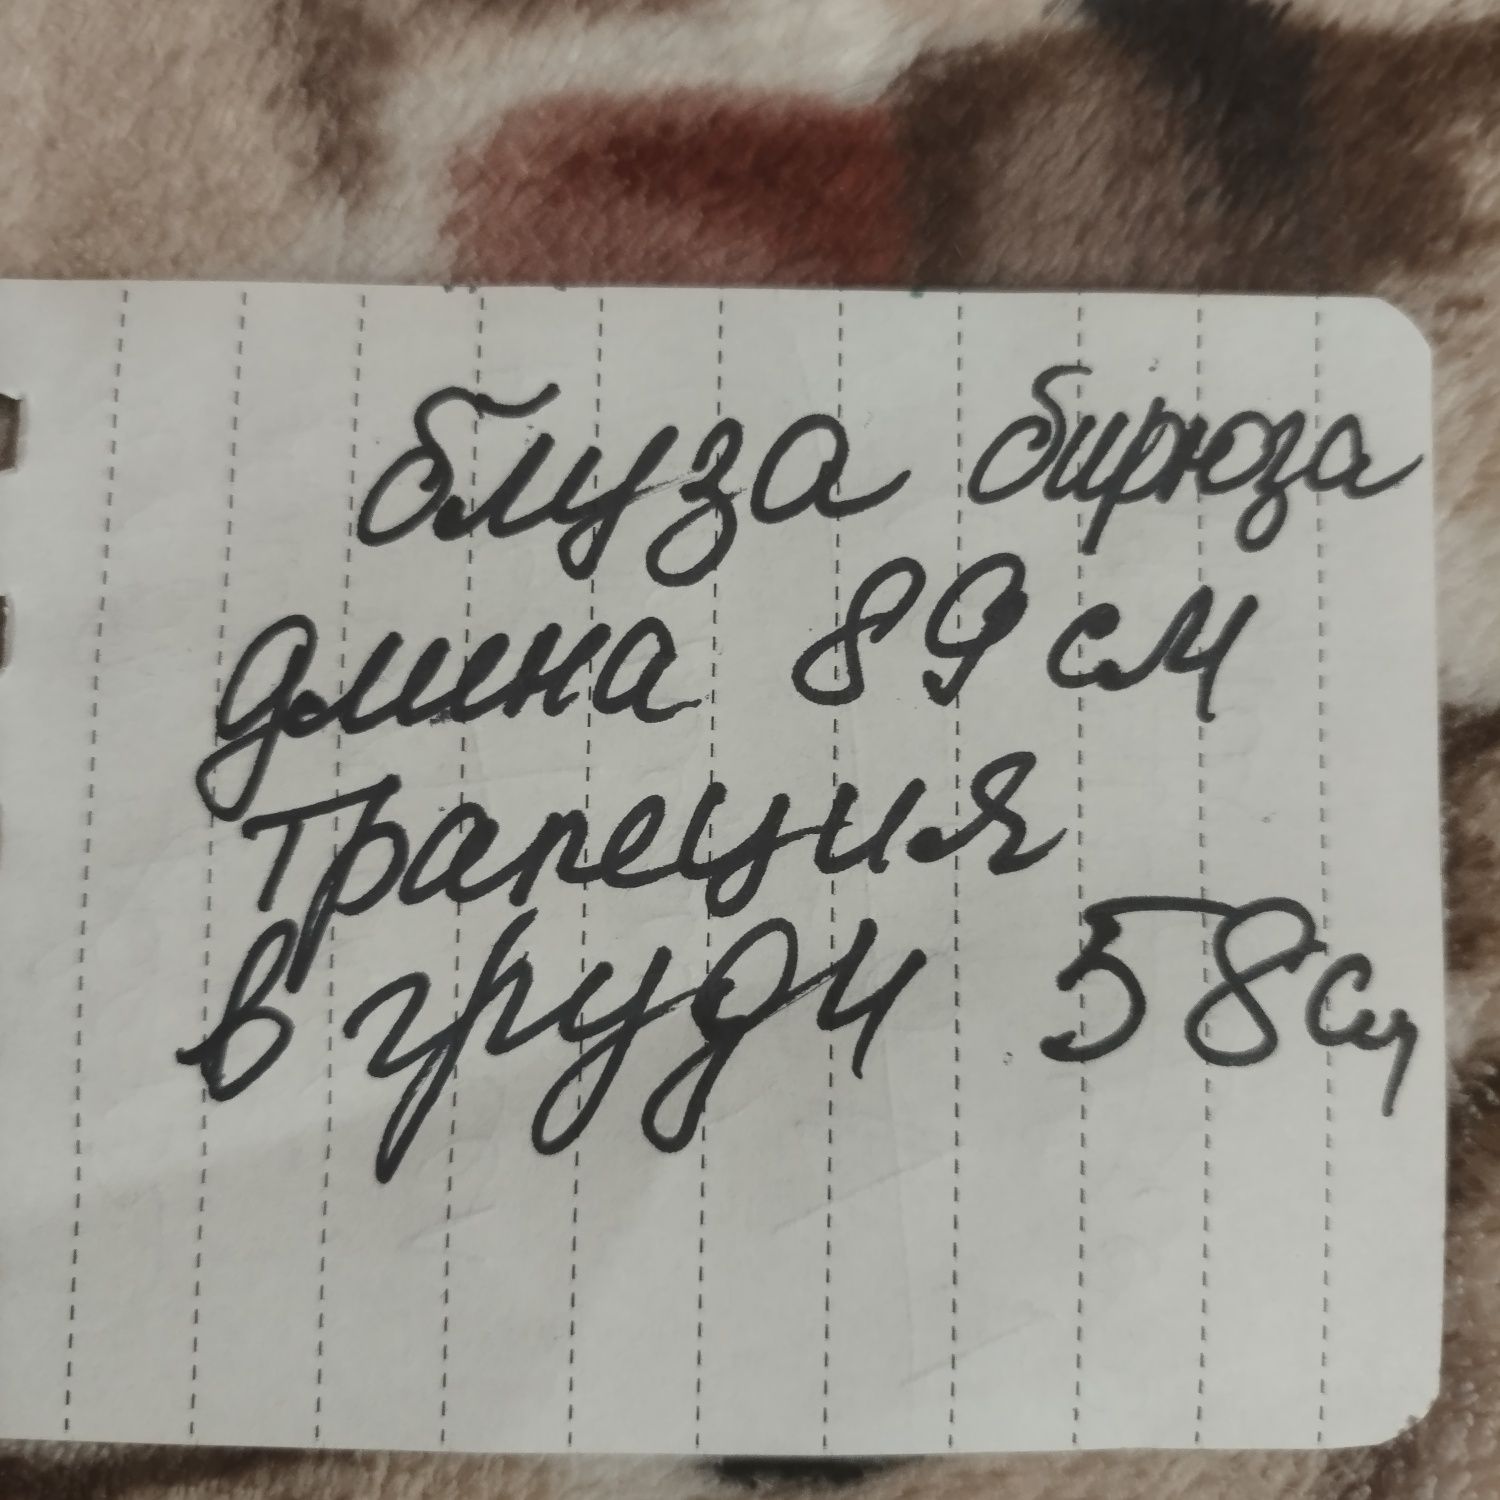 блуза бирюза
длина 89 см
трапеция
в груди 58 см